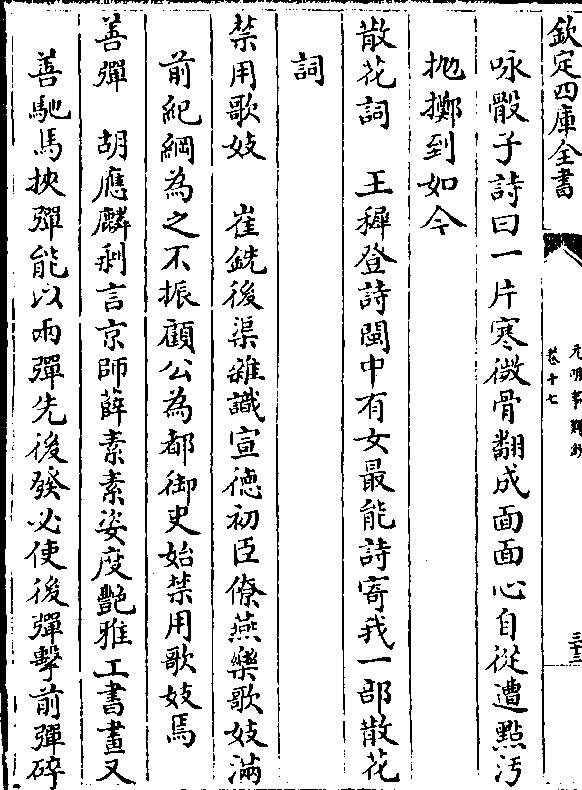 欽定四庫全書
元明事類鈔
卷十七
三十三
咏骰子詩曰一片寒微骨翻成面面心自從遭點汚
抛擲到如今
散花詞　王穉登詩閩中有女最能詩寄我一部散花
詞
禁用歌妓　崔銑後渠雜識宣徳初臣僚燕樂歌妓滿
前紀綱為之不振顧公為都御史始禁用歌妓焉
善彈　胡應麟剩言京師薛素素姿度艷雅工書畫又
善馳馬挾彈能以兩彈先後發必使後彈擊前彈碎